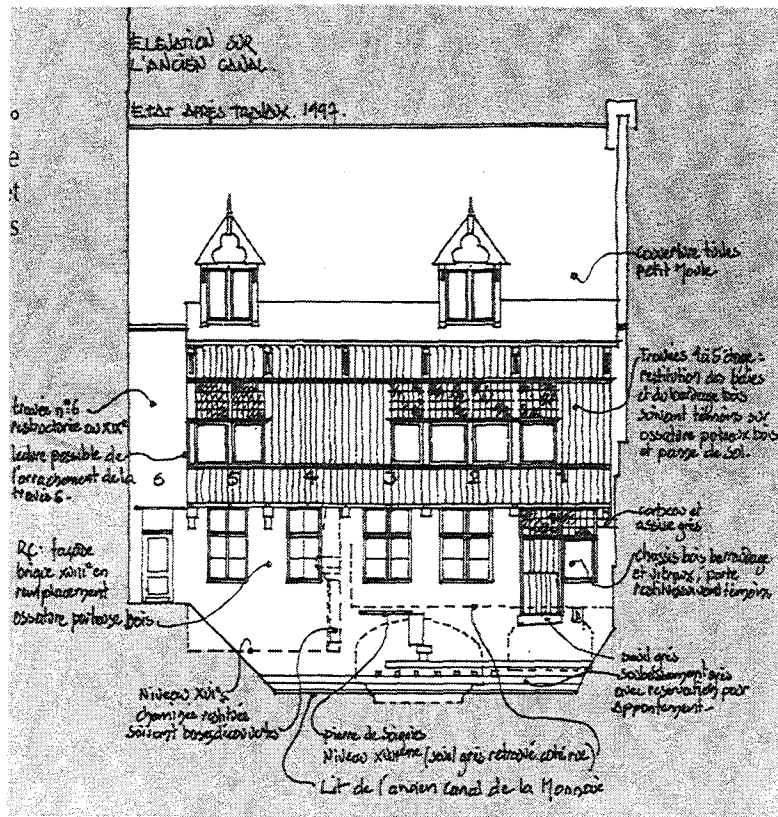 ELEVATION SUR
L'ANCIEN CANAL
ETAT APRES TRAVAUX. 1997.
couverture tuiles
petit Moule.
Travées 1 à 5 étage :
restitution des baies
et du bardage bois
suivant témoins sur
ossature poteaux bois
et panse de sol.
travée n°6
restructurée au XIXe
lecture possible de
l'arrachement de la
travée 6.
6 5 4 3 2 1
corbeau et
assise grès
RC : façade
brique XVIIIe en
remplacement
ossature porteuse bois
chassis bois barreaudage
et vitraux, porte
restitués suivant témoins
seuil grès
soubassement grès
avec reservation pour
appontement.
Niveau XVIe
cheminée restituée
suivant bases découvertes
pierre de Soignies
Niveau XVIIème (seuil grès retrouvé coté rue)
Lit de l'ancien Canal de la Monnaie